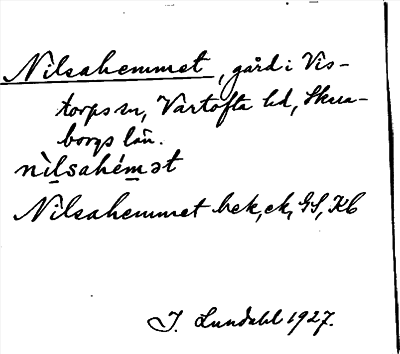 Nilsahemmet, gård i Vis-
torps sn, Vartofta hd, Skara-
borgs län.
nìlsahémət
Nilsahemmet bek, ek, GS, Kb
I. Lundahl 1927.